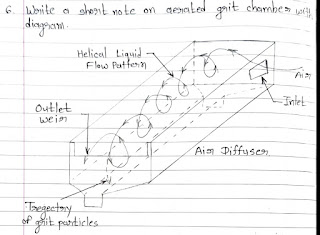 6. Write a short note on aerated grit chamber with
diagram.
Helical Liquid
Flow Pattern
Air
Inlet
Outlet
weir
Air Diffuser
Tregectry
of grit particles